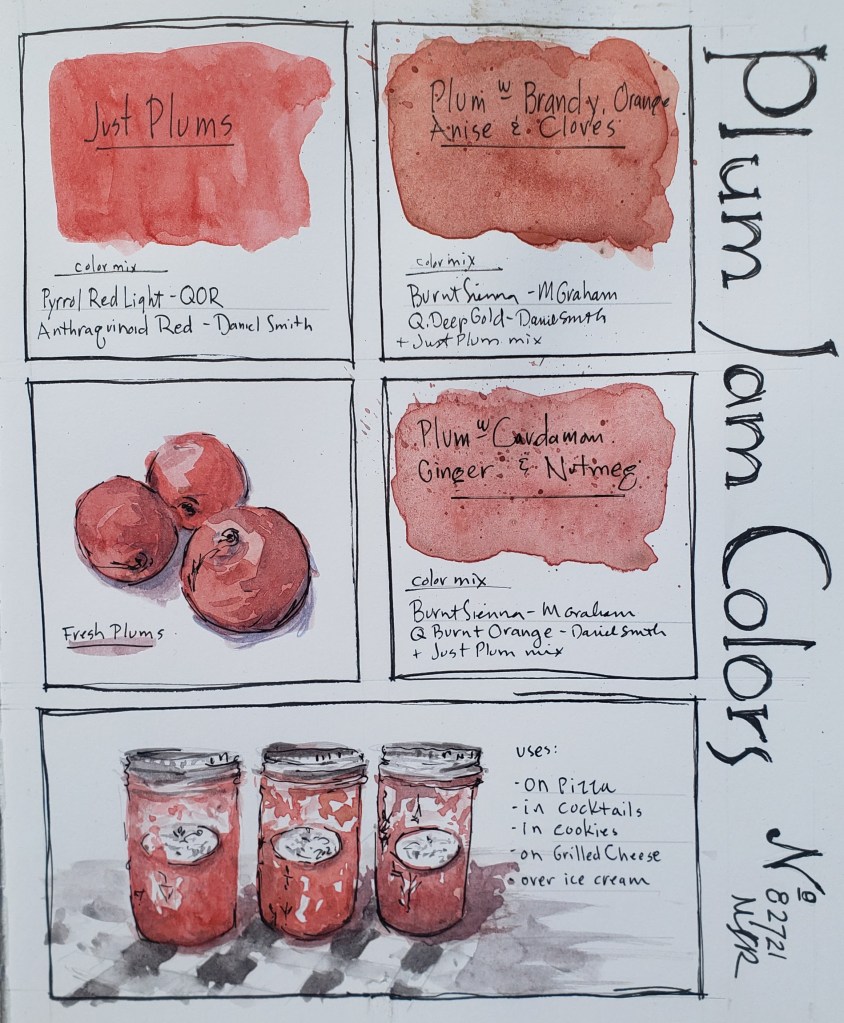 Just Plums
color mix
Pyrrol Red Light - QOR
Anthraquinoid Red - Daniel Smith
Plum w Brandy, Orange
Anise & Cloves
color mix
Burnt Sienna - M Graham
Q. Deep Gold - Daniel Smith
+ Just Plum mix
Fresh Plums
Plum w Cardamom
Ginger & Nutmeg
color mix
Burnt Sienna - M Graham
Q Burnt Orange - Daniel Smith
+ Just Plum mix
uses:
- on Pizza
- in cocktails
- In cookies
- on Grilled Cheese
• over ice cream
Plum Jam Colors
Nº
82721